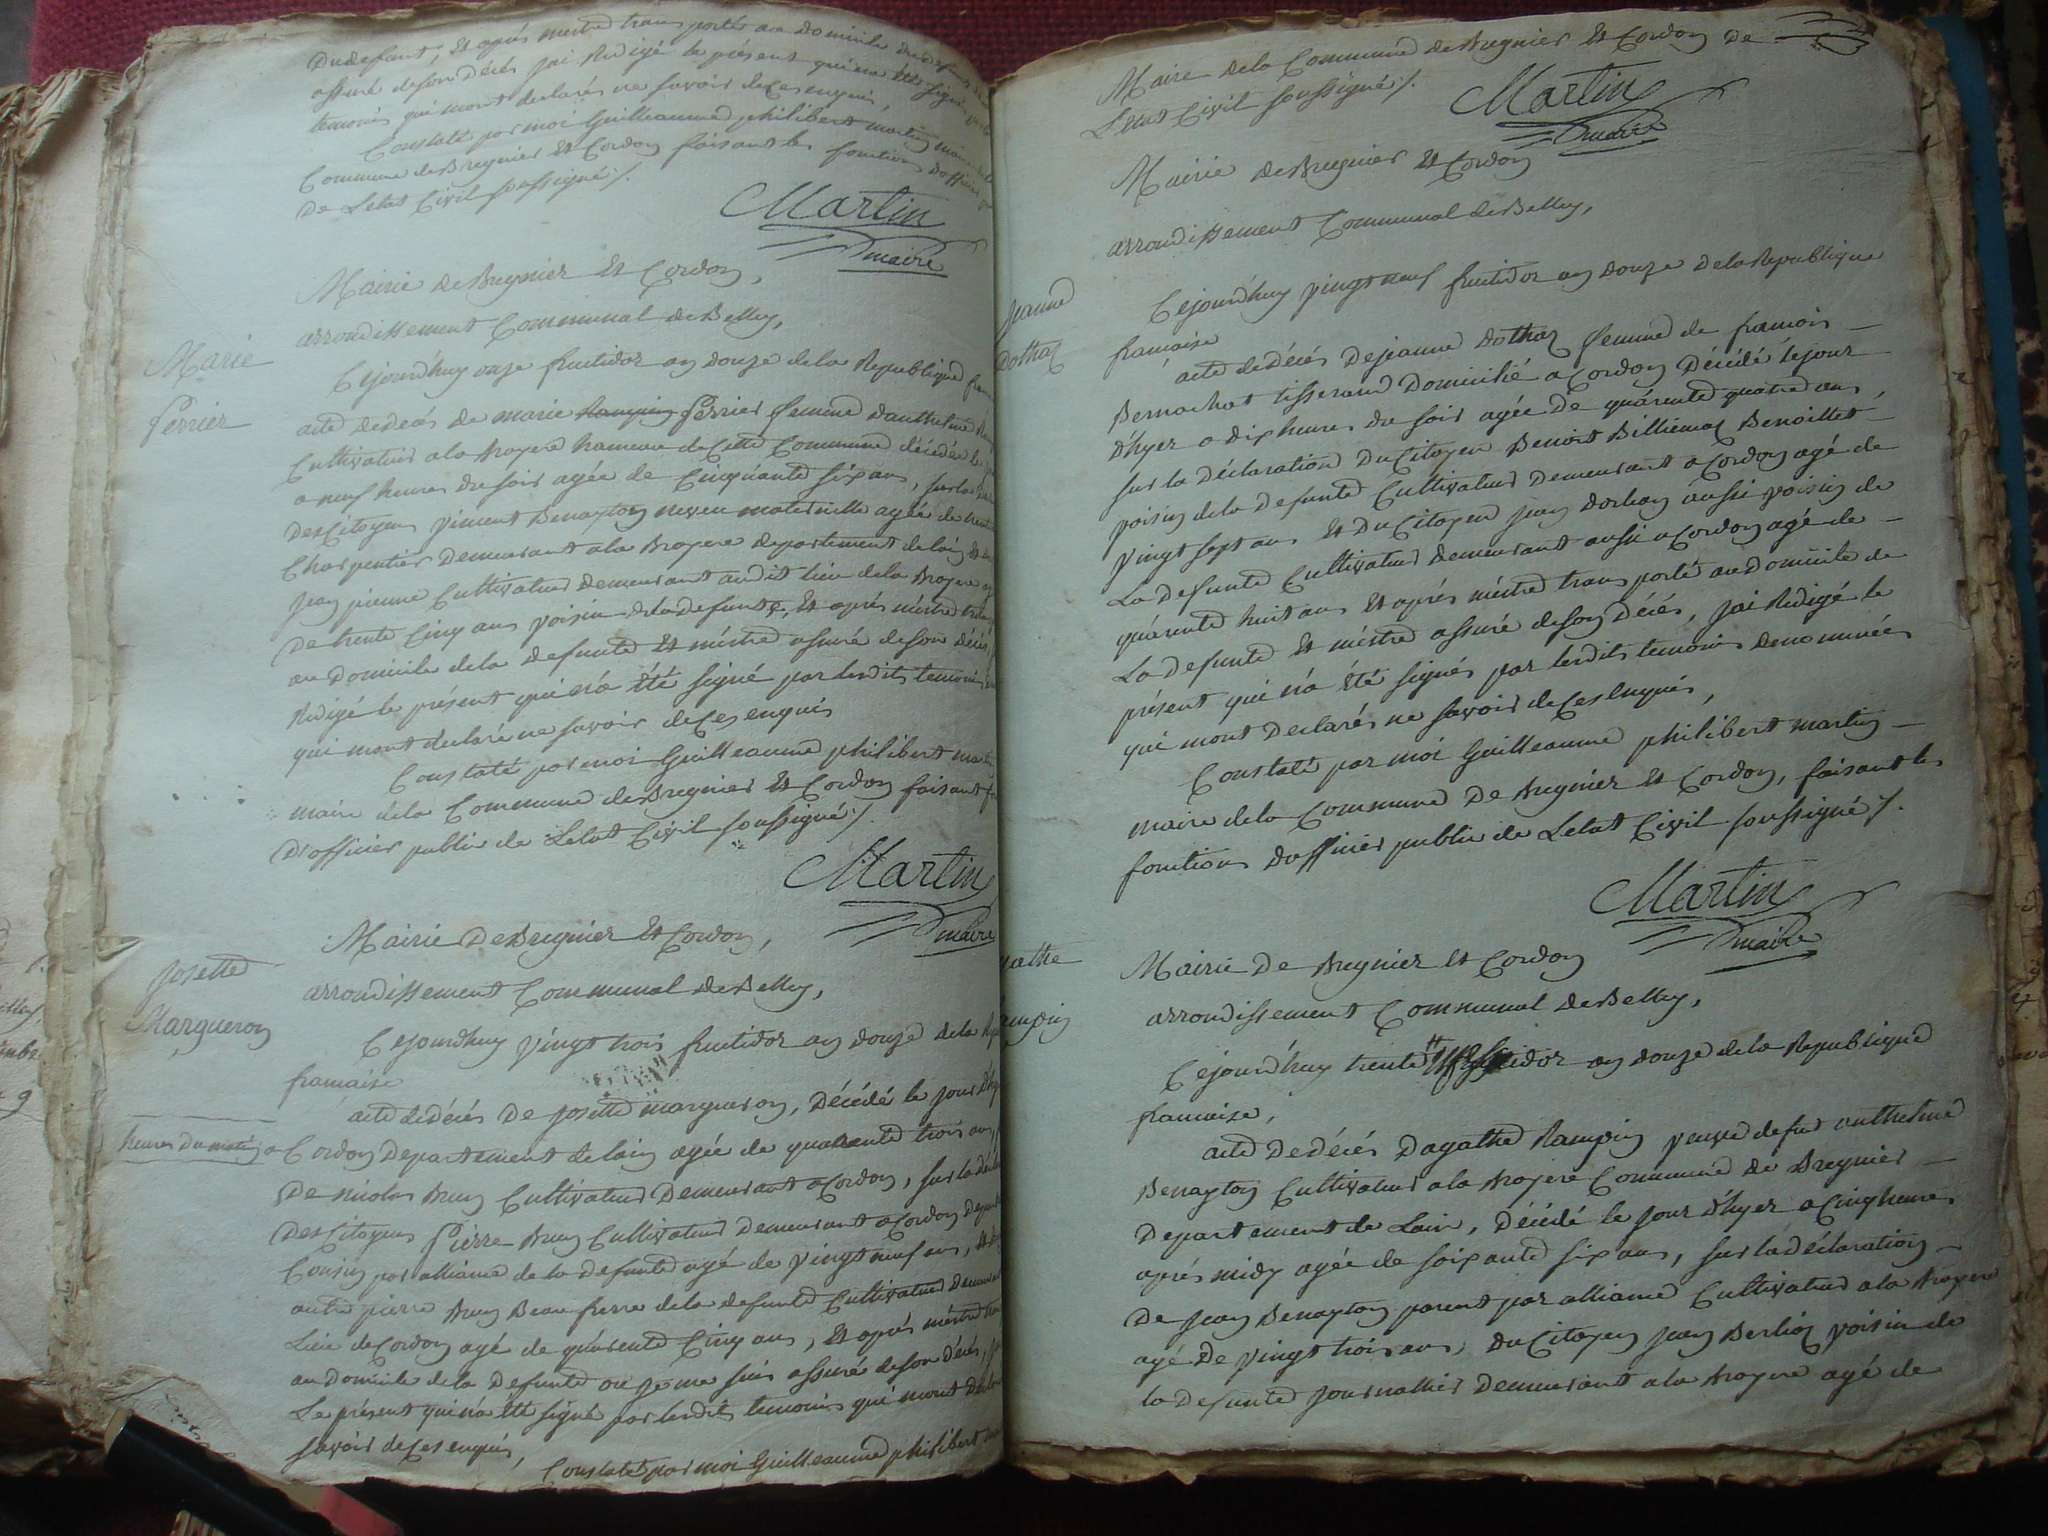 Du defunt, et aprés mestre transportés au Domicile du defunt
assuré deson Décés jai Redigé le présent qui na été signé
temoins qui mont declarés ne savoir deCes enquis,
Constaté par moi Guilleaume philibert martin maire
Commune deBregnier Et Cordon faisant les fonctions Dofficier
De Letat Civil soussigné ./.
Martin
maire
Mairie deBregnier Et Cordon,
arrondissement Communal deBelley,
Marie
Perrier
Cejourd'huy onze fructidor an douze dela Republique
acte dedécés de marie Rampin Perrier femme danthelme
Cultivateur ala Bruyere hameau deCette Commune décédée le
a neuf heures du soir agée de Cinquante six ans, sur la
Des Citoyens vincent Benayton neveu maternelle agée de trente
Charpentier Demeurant ala Bruyere departement de lain et de
Jean pienne Cultivateur demeurant audit lieu dela Bruyere
De trente Cinq ans voisin dela defunte, Et aprés mêstre
au domicile dela defunte Et mêstre assuré deson décés,
Redigé le présent qui n'a été signé par lesdits temoins
qui mont declaré ne savoir deCes enquis
Constaté par moi Guilleaume philibert martin
maire dela Commune deBregnier Et Cordon faisant
D'officier public de Letat Civil soussigné ./.
Martin
maire
Mairie DeBregnier Et Cordon,
arrondissement Communal deBelley,
Josette
Margueron
Cejourdhuy vingt trois fructidor an douze dela
francaise
acte dedécés De Josette margueron, Décédé le jour d'hyer
heures du matin a Cordon Departement delain agée de quarante trois ans,
De nicolas Cultivateur Demeurant a Cordon, sur la
Des Citoyens Pierre Cultivateur demeurant a Cordon
Cousin par alliance de la defunte agé de vingt neuf ans, et
autre pierre Beau frere dela defunte Cultivateur
Lieu deCordon agé de quarente Cinq ans, Et aprés mêstre
au Domicile dela Defunte ou Je me suis assuré deson décés,
Le présent qui n'a été signé par lesdits temoins qui mont
savoir deCes enquis,
Constaté par moi Guilleaume philibert
Maire dela Commune deBregnier Et Cordon De
Letat Civil soussigné ./.
Martin
maire
Mairie deBregnier Et Cordon
arrondissement Communal deBelley,
Jeanne
Dothaz
Cejourdhuy vingt neuf fructidor an douze dela Republique
francaise
acte dedécés Dejeanne dothaz femme de francois
Bernachot tisserand Domicilié a Cordon Décédé lejour
d'hyer a dix heures du soir agée De quarente quatre ans
sur la déclaration Du Citoyen Benoit Billiemaz Benoillet
voisin dela defunte Cultivateur Demeurant a Cordon agé de
vingt sept ans Et Du Citoyen Jean aussi voisin de
La defunte Cultivateur demeurant aussi a Cordon agé de
quarente huit ans Et aprés mêstre transporté au domicile de
La defunte Et mêstre assuré deson Décés, jai Redigé le
présent qui n'a été signés par lesdits temoins denommés
qui mont Declarés ne savoir deCes Enquis,
Constaté par moi Guilleaume philibert martin
maire dela Commune De Bregnier Et Cordon, faisant les
fonctions Dofficier public de Letat Civil soussigné ./.
Martin
maire
Mairie De Bregnier Et Cordon
arrondissement Communal deBelley,
Cejourd'huy trente fructidor an douze dela Republique
francaise,
acte Dedécés Dagathe Rampin veuve defut anthelme
Benayton Cultivateur ala Bruyere Commune de Bregnier
Departement de Lain, Décédé le jour d'hyer a Cinq heures
aprés midy agée de soixante six ans, sur la déclaration
De Jean Benayton parent par alliance Cultivateur ala Bruyere
agé De vingt trois ans, du Citoyen Jean Berlioz voisin de
la defunte Journallier Demeurant ala Bruyere agé de